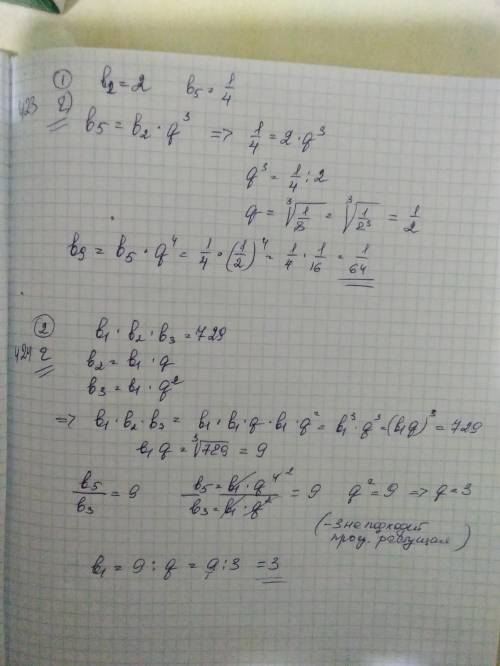 ① b₂ = 2   b₅ = 1/4
423 г)
b₅ = b₂ · q³ => 1/4 = 2 · q³
q³ = 1/4 : 2
q = ∛(1/8) = ∛(1/2³) = 1/2
b₉ = b₅ · q⁴ = 1/4 · (1/2)⁴ = 1/4 · 1/16 = 1/64
② b₁ · b₂ · b₃ = 729
424 г b₂ = b₁ · q
b₃ = b₁ · q²
=> b₁ · b₂ · b₃ = b₁ · b₁ · q · b₁ · q² = b₁³ · q³ = (b₁q)³ = 729
b₁q = ∛789 = 9
b₅/b₃ = 9   b₅ = b₁ · q⁴ / b₃ = b₁ · q² = 9   q² = 9 => q = 3
(-3 не подходит
прогр. растущая)
b₁ = 9 : q = 9 : 3 = 3